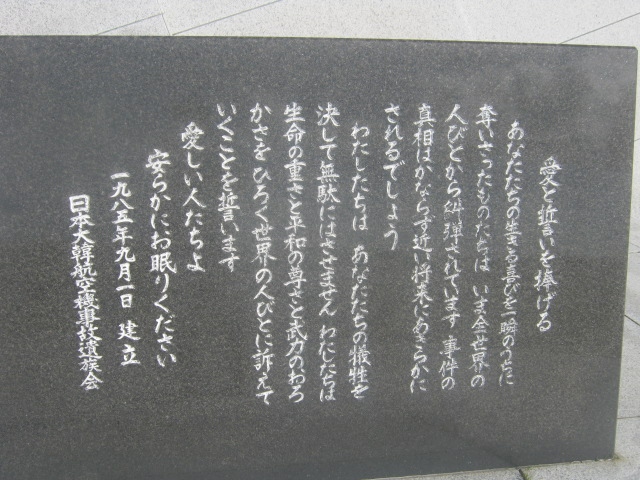 愛と誓いを捧げる
あなたたちの生きる喜びを一瞬のうちに
奪いさったものたちは いま全世界の
人びとから糾弾されています 事件の
真相はかならず近い将来にあきらかに
されるでしょう
わたしたちは あなたたちの犠牲を
決して無駄にはさせません わたしたちは
生命の重さと平和の尊さと武力のおろ
かさを ひろく世界の人びとに訴えて
いくことを誓います
愛しい人たちよ
安らかにお眠りください
一九八五年九月一日 建立
日本大韓航空機事故遺族会